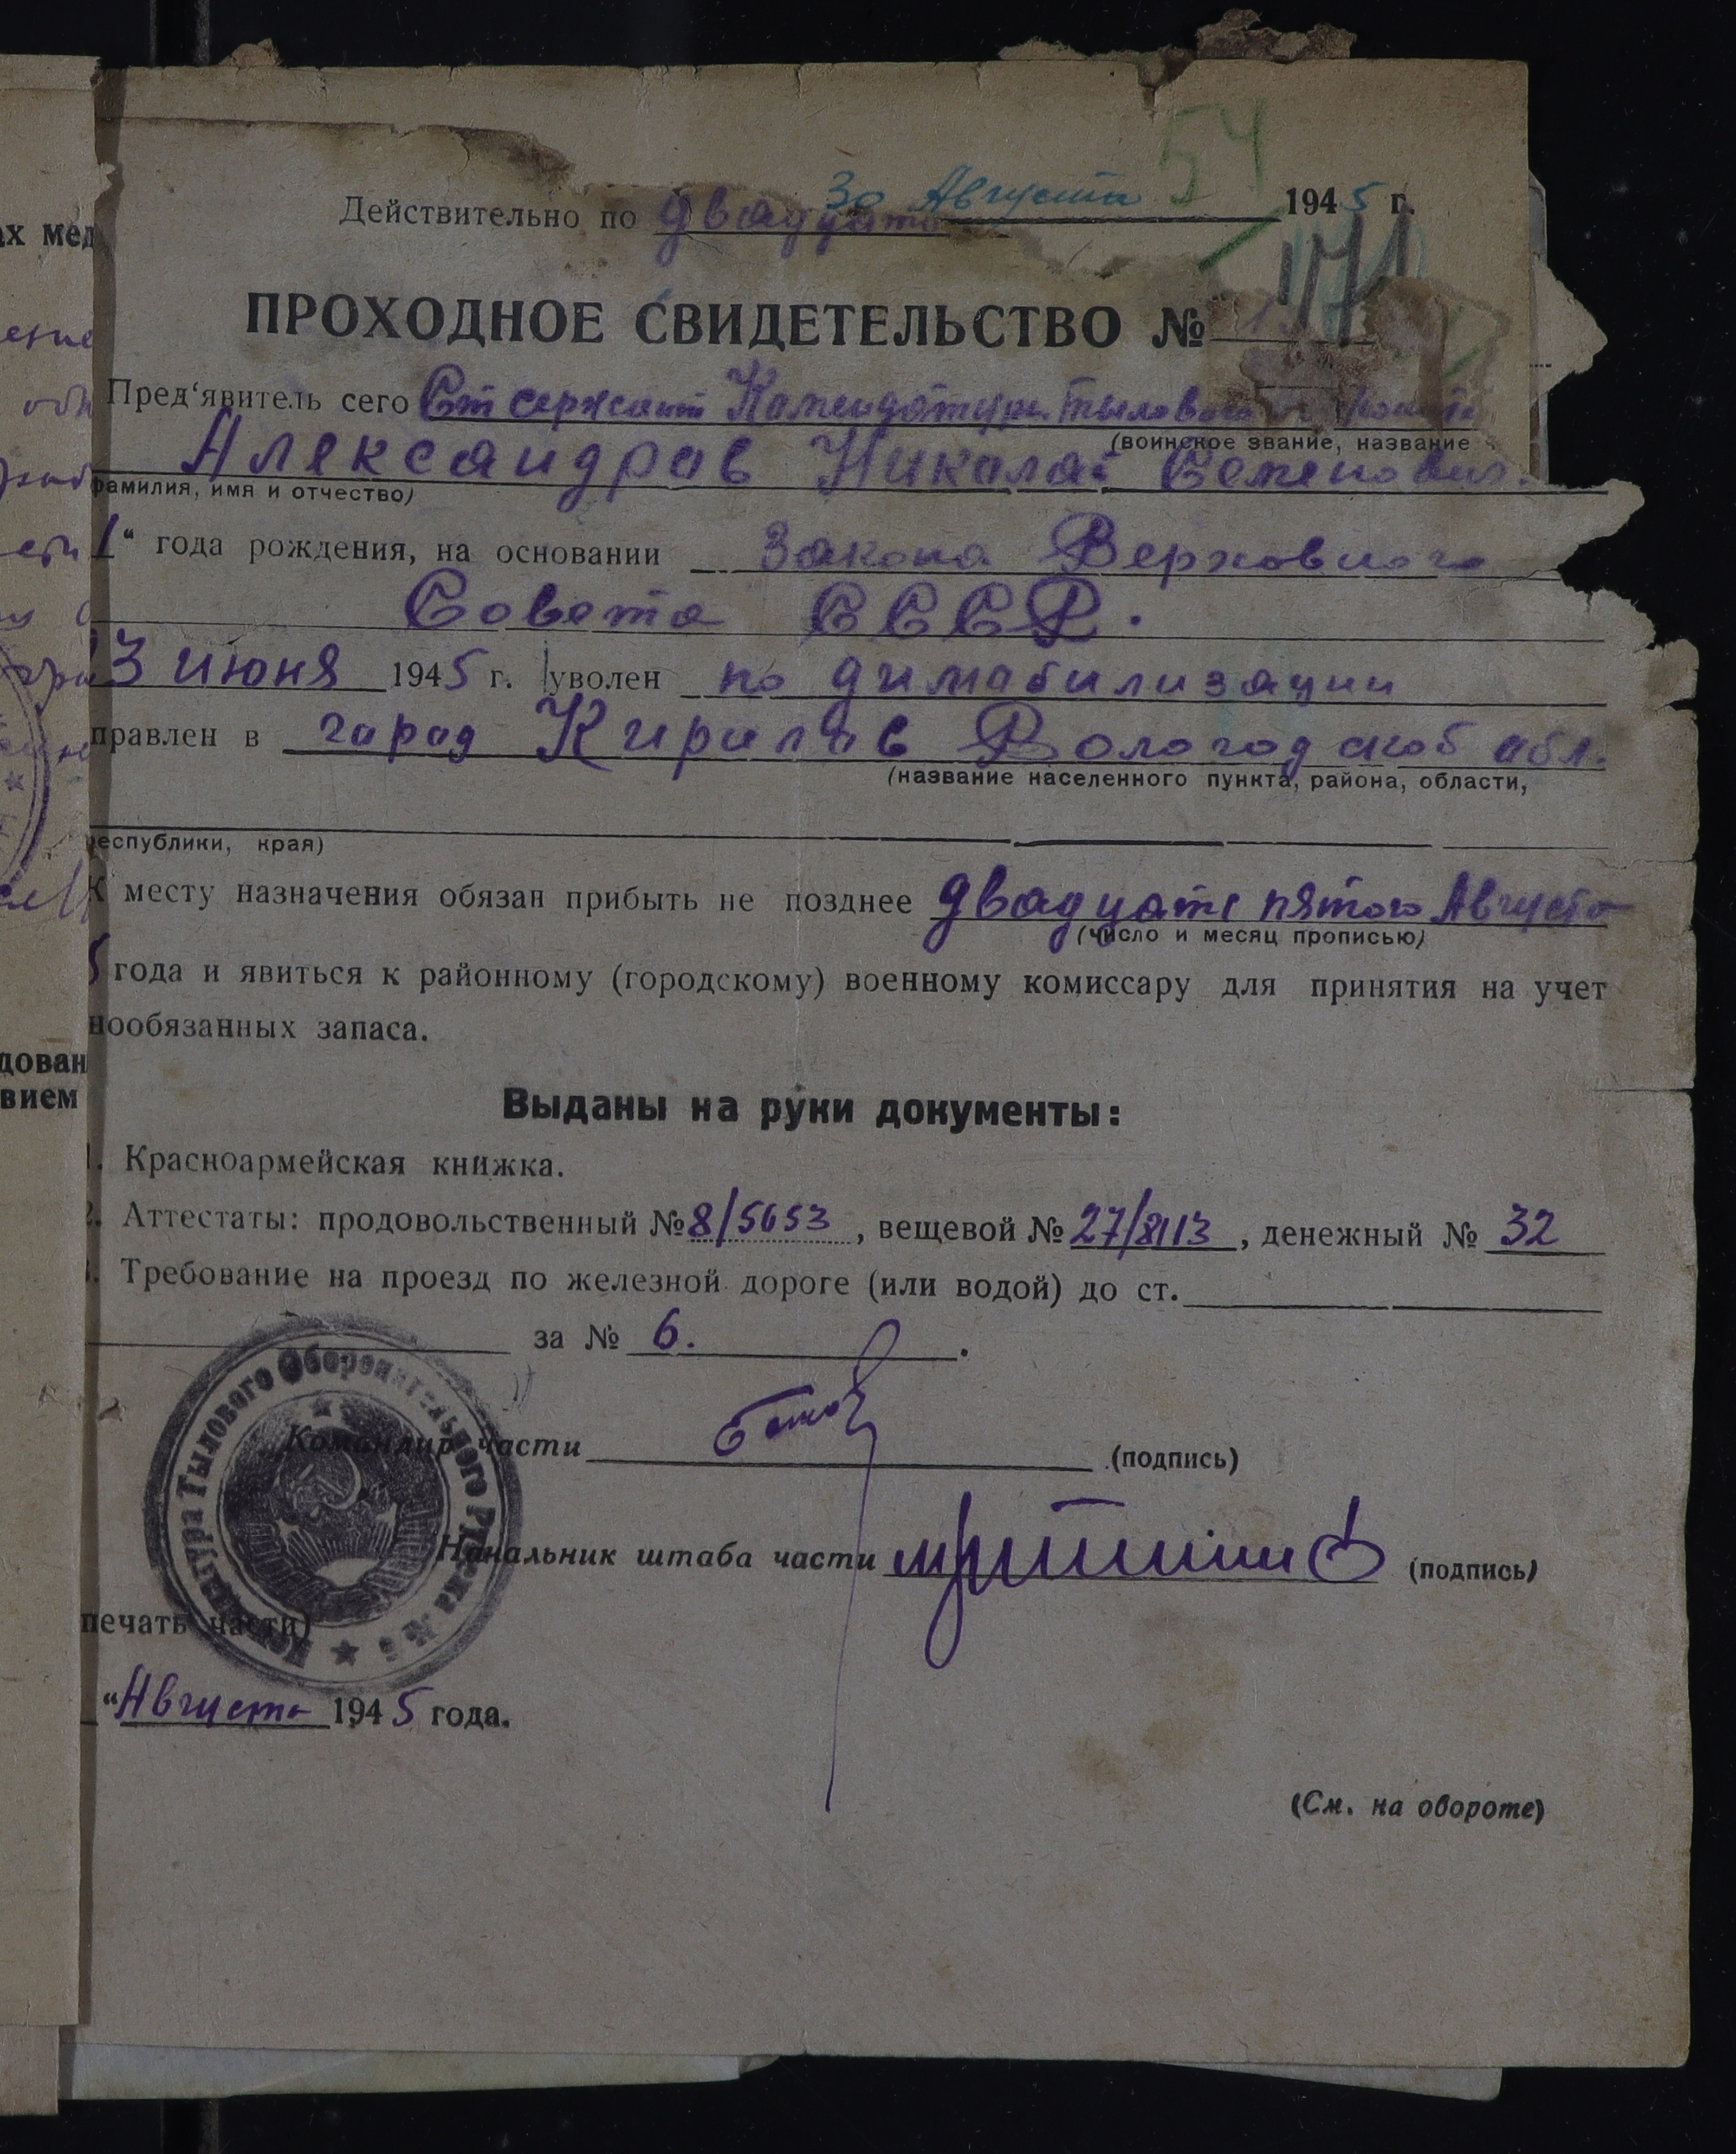 54
30 Августа
Действительно по двадцать 1945 г.
171
ПРОХОДНОЕ СВИДЕТЕЛЬСТВО №
Пред'явитель сего Ст сержант Комендатуры Тылового
(воинское звание, название
Александров Николай Семенович
фамилия, имя и отчество)
1" года рождения, на основании Закона Верховного
Совета СССР.
23 июня 1945 г. уволен по димабилизации
правлен в город Кирилов Вологодской обл.
(название населенного пункта, района, области,
республики, края)
К месту назначения обязан прибыть не позднее двадцать пятого Августа
(число и месяц прописью)
5 года и явиться к районному (городскому) военному комиссару для принятия на учет
нообязанных запаса.
Выданы на руки документы:
1. Красноармейская книжка.
2. Аттестаты: продовольственный № 8/5653, вещевой № 27/8113, денежный № 32
3. Требование на проезд по железной дороге (или водой) до ст.
за № 6.
Командир части (подпись)
Комендатура Тылового Оборонительного Р
Начальник штаба части (подпись)
печать части)
" Августа 1945 года.
(См. на обороте)